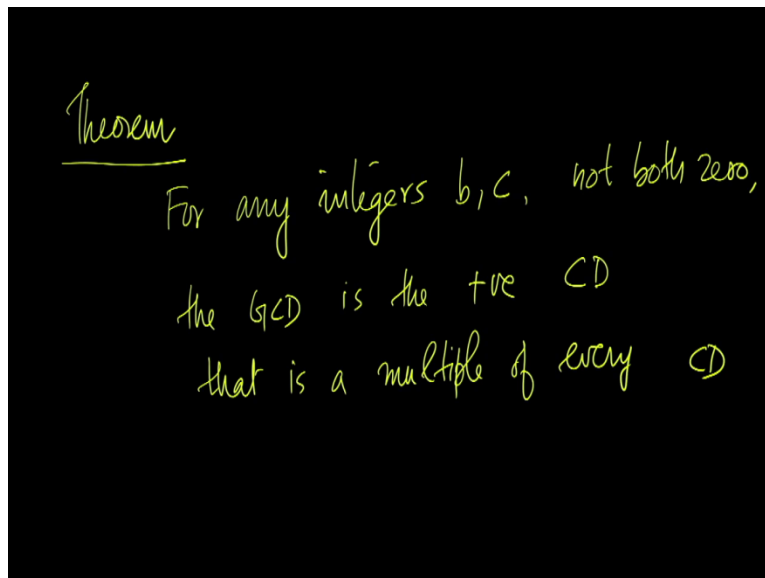 Theorem
For any integers b, c, not both zero,
the GCD is the +ve CD
that is a multiple of every CD